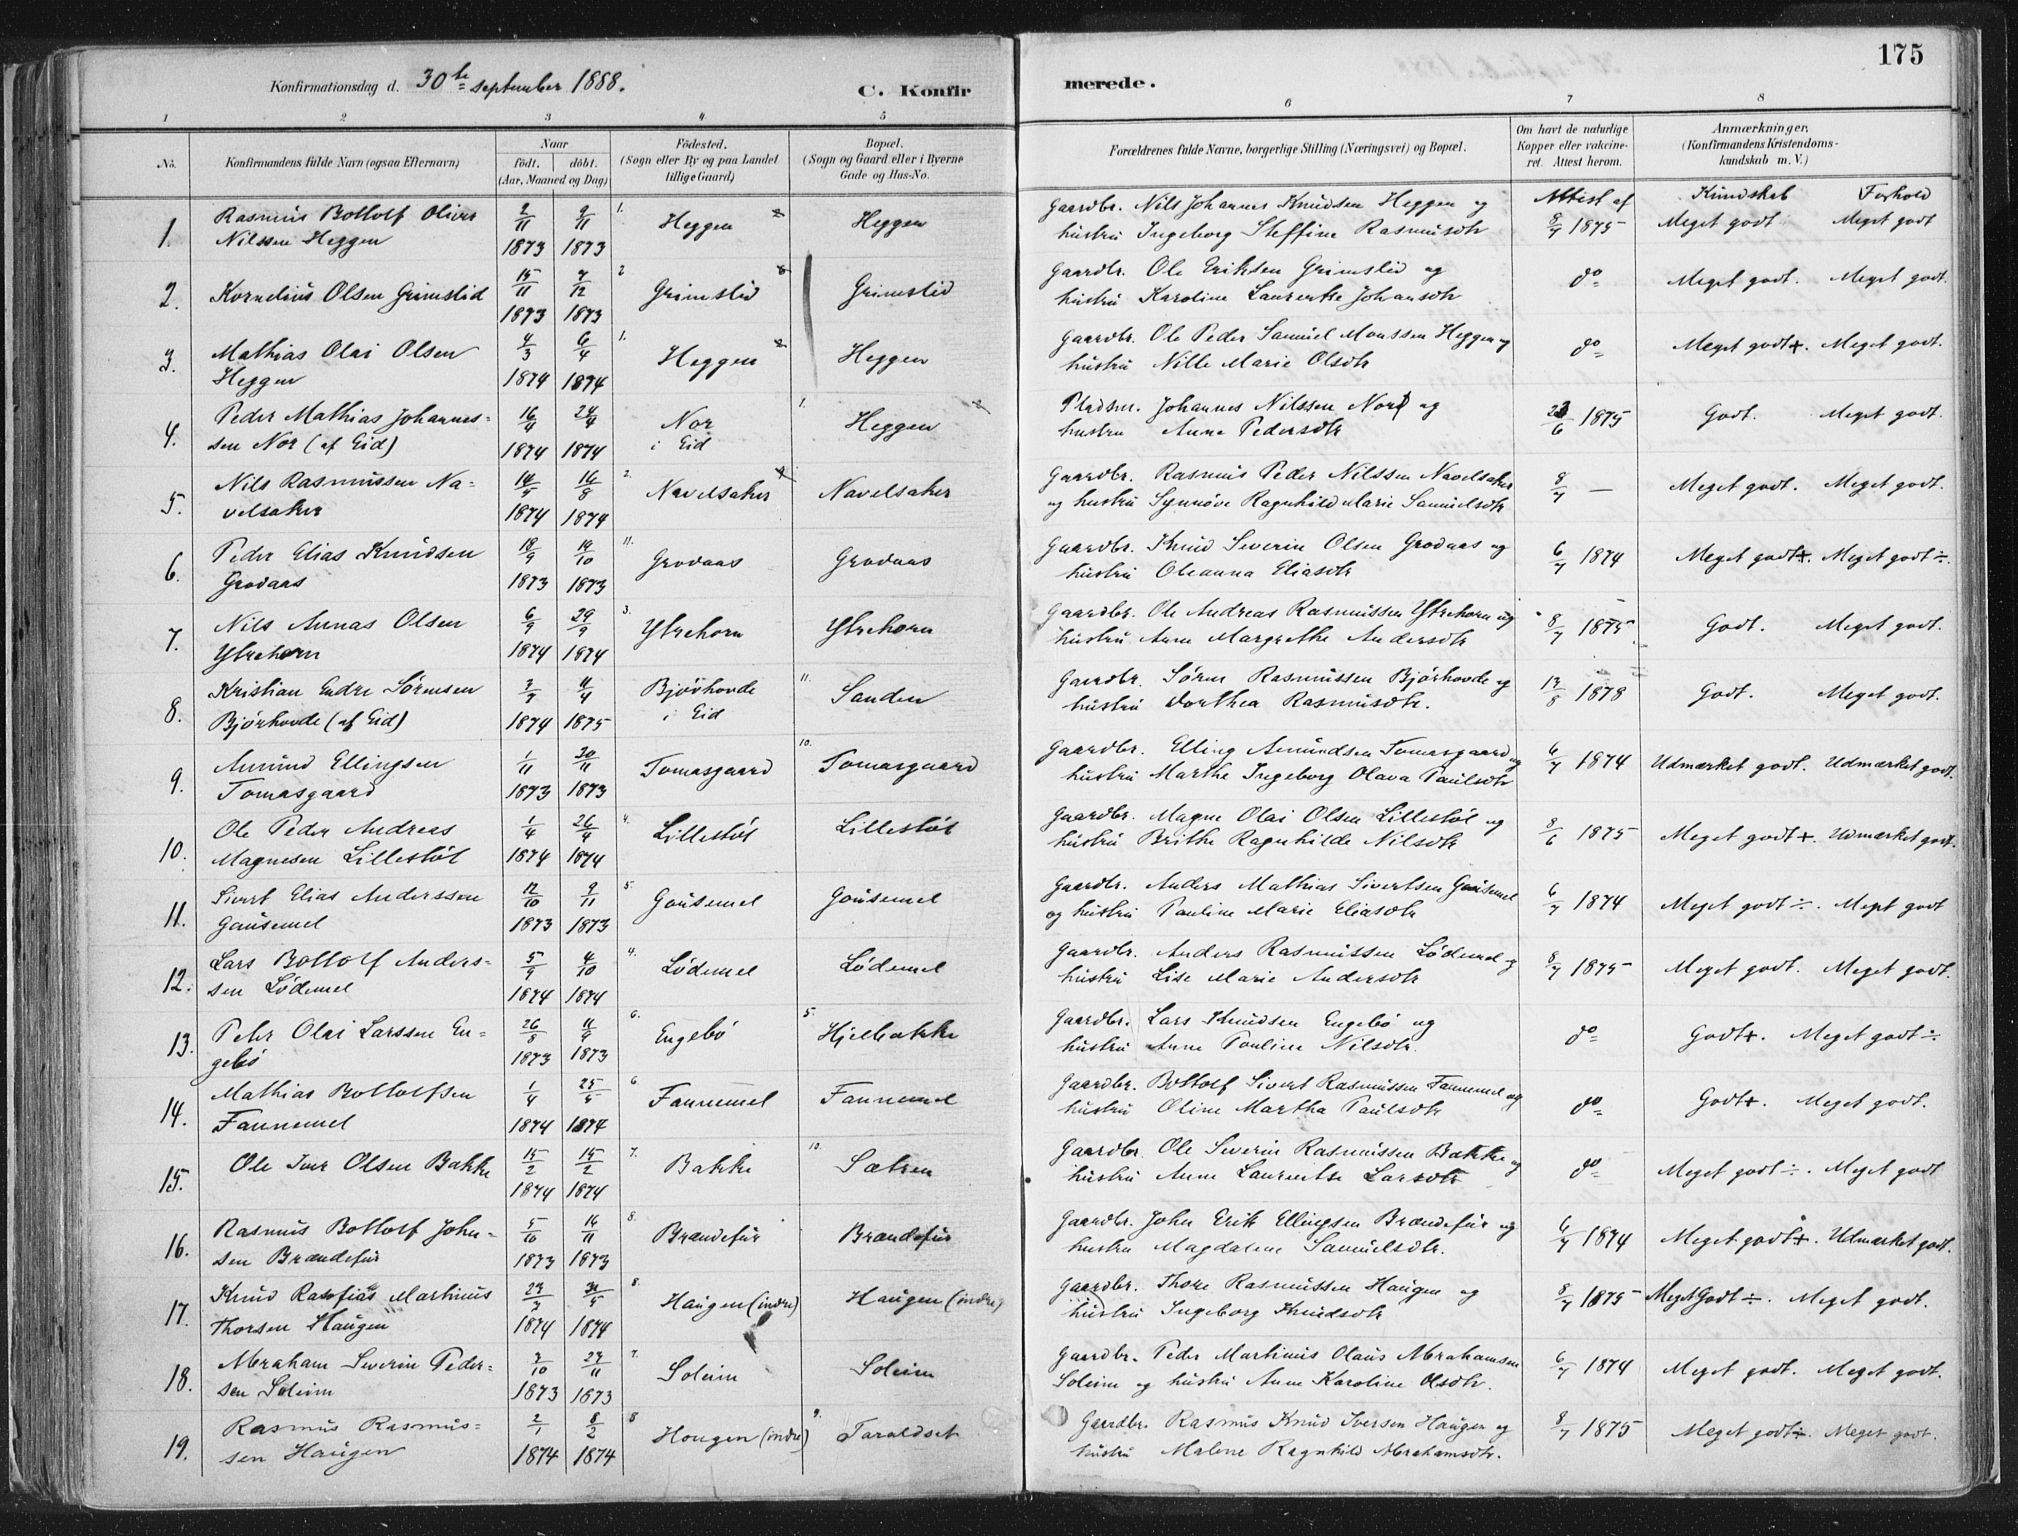 175
Konfirmationsdag d. 30te september 1888.
C. Konfir
merede.
1 2 3 4 5 6 7 8
No.
Konfirmandens fulde Navn (ogsaa Efternavn)
Naar
født. døbt.
(Aar, Maaned og Dag)
Fødested.
(Sogn eller By og paa Landet
tillige Gaard)
Bopæl.
(Sogn og Gaard eller i Byerne
Gade og Hus-No.
Forældrenes fulde Navne, borgerlige Stilling (Næringsvei) og Bopæl.
Om havt de naturlige
Kopper eller vakcine-
ret. Attest herom.
Anmærkninger.
(Konfirmandens Kristendoms-
kundskab m. V.)
Rasmus Bottolf Oliver 2/11 9/11 1. Heggen Heggen Gaardbr. Nils Johannes Knudsen Heggen og Attest af Kundskab Forhold
1. Nilssen Heggen 1873 1873 hustru Ingeborg Steffine Rasmusdtr 8/7 1875 Meget godt Meget godt
15/11 7/12 2. Gaardbr. Ole Eriksen Grimstid og
2. Kornelius Olsen Grimstid 1873 1873 Grimstid Grimstid hustru Karoline Laurentse Johansdtr do Meget godt. Meget godt.
Mathias Olai Olsen 4/3 6/4 1. Heggen Heggen Gaardbr. Ole Peder Samuel Monssen Heggen og
3. Heggen 1874 1874 hustru Nille Marie Olsdtr do Meget godt+. Meget godt.
Peder Mathias Johannes- 16/4 24/4 Nor 1. Heggen Pladsm. Johannes Nilssen Nor og
4. sen Nor (af Eid) 1874 1874 i Eid hustru Anne Pedersdtr 23/6 1875 Godt. Meget godt.
Nils Rasmussen Na- 14/5 16/8 2. Navelsaker Navelsaker Gaardbr. Rasmus Peder Nilssen Navelsaker
5. velsaker 1874 1874 og hustru Synnøve Ragnhild Marie Samuelsdtr 8/7 — Meget godt. Meget godt.
Peder Elias Knudsen 18/9 19/10 11. Grodaas Grodaas Gaardbr. Knud Severin Olsen Grodaas og
6. Grodaas 1873 1873 hustru Oleanna Eliasdtr 6/7 1874 Meget godt+. Meget godt ÷.
Nils Annas Olsen 6/9 29/9 3. Ytrehorn Ytrehorn Gaardbr. Ole Andreas Rasmussen Ytrehorn og
7. Ytrehorn 1874 1874 hustru Anne Margrethe Andersdtr 8/7 1875 Godt. Meget godt.
Kristian Endre Sørensen 7/7 11/4 Bjørhovde 11. Sanden Gaardbr. Søren Rasmussen Bjørhovde og
8. Bjørhovde (af Eid) 1874 1875 i Eid hustru Dorthea Rasmusdtr. 13/8 1878 Godt. Meget godt.
Amund Ellingsen 1/11 30/11 Tomasgaard 10. Tomasgaard Gaardbr. Elling Amundsen Tomasgaard og
9. Tomasgaard 1873 1873 hustru Marthe Ingeborg Olava Paulsdtr 6/7 1874 Udmærket godt. Udmærket godt.
Ole Peder Andreas 1/4 26/4 4. Lillestøl Lillestøl Gaardbr. Magne Olai Olsen Lillestøl og
10. Magnesen Lillestøl 1874 1874 hustru Brithe Ragnhilde Nilsdtr 8/6 1875 Meget godt+. Udmærket godt.
Sivert Elias Anderssen 12/10 9/11 5. Gausemel Gausemel Gaardbr. Anders Mathias Sivertsen Gausemel
11. Gausemel 1873 1873 og hustru Pauline Marie Eliasdtr 6/7 1874 Meget godt ÷. Meget godt
Lars Bottolf Anders- 5/9 4/10 4. Lødemel Lødemel Gaardbr. Anders Rasmussen Lødemel og
12. sen Lødemel 1874 1874 hustru Lise Marie Andersdtr 8/7 1875 Meget godt. Meget godt.
Peter Olai Larssen En- 26/8 11/9 6. Engebø 5. Hjelbakke Gaardbr. Lars Knudsen Engebø og
13. gebø 1873 1873 hustru Anne Pauline Nilsdtr. do Godt+. Meget godt ÷
Mathias Bottolfsen 1/4 25/5 6. Fannemel Fannemel Gaardbr. Bottolf Sivert Rasmussen Fannemel og
14. Fannemel 1874 1874 hustru Oline Martha Paulsdtr do Godt+. Meget godt.
Ole Iver Olsen Bakke 15/2 15/2 7. Bakke 10. Sætren Gaardbr. Ole Severin Rasmussen Bakke og
15. 1874 1874 hustru Anne Laurentse Larsdtr do Meget godt ÷. Meget godt
Rasmus Bottolf John- 5/10 16/11 8. Brændefur Brændefur Gaardbr. John Erik Ellingsen Brændefur og
16. sen Brændefur 1873 1873 hustru Magdalene Samuelsdtr. 6/7 1874 Meget godt+. Udmærket godt.
Knud Martinus 8. Haugen (indre) Haugen (indre) Gaardbr. Thore Rasmussen Haugen og
17. Thorsen Haugen 1874 1874 hustru Ingeborg Knudsdtr 8/7 1875 Meget Godt ÷. Meget godt.
Abraham Severin Peder- 7/10 23/11 7. Soleim Soleim Gaardbr. Peder Martinus Olaus Abrahamsen
18. sen Soleim 1873 1873 Soleim og hustru Anne Karoline Olsdtr. 6/7 1874 Meget godt. Meget godt.
Rasmus Rasmus- 2/1 8/2 8 Hougen (indre) 9. Taraldset Gaardbr. Rasmus Knud Iversen Haugen og
19. sen Haugen 1874 1874 hustru Malene Ragnhild Abrahamsdtr. 8/7 1875 Meget godt÷. Meget godt.